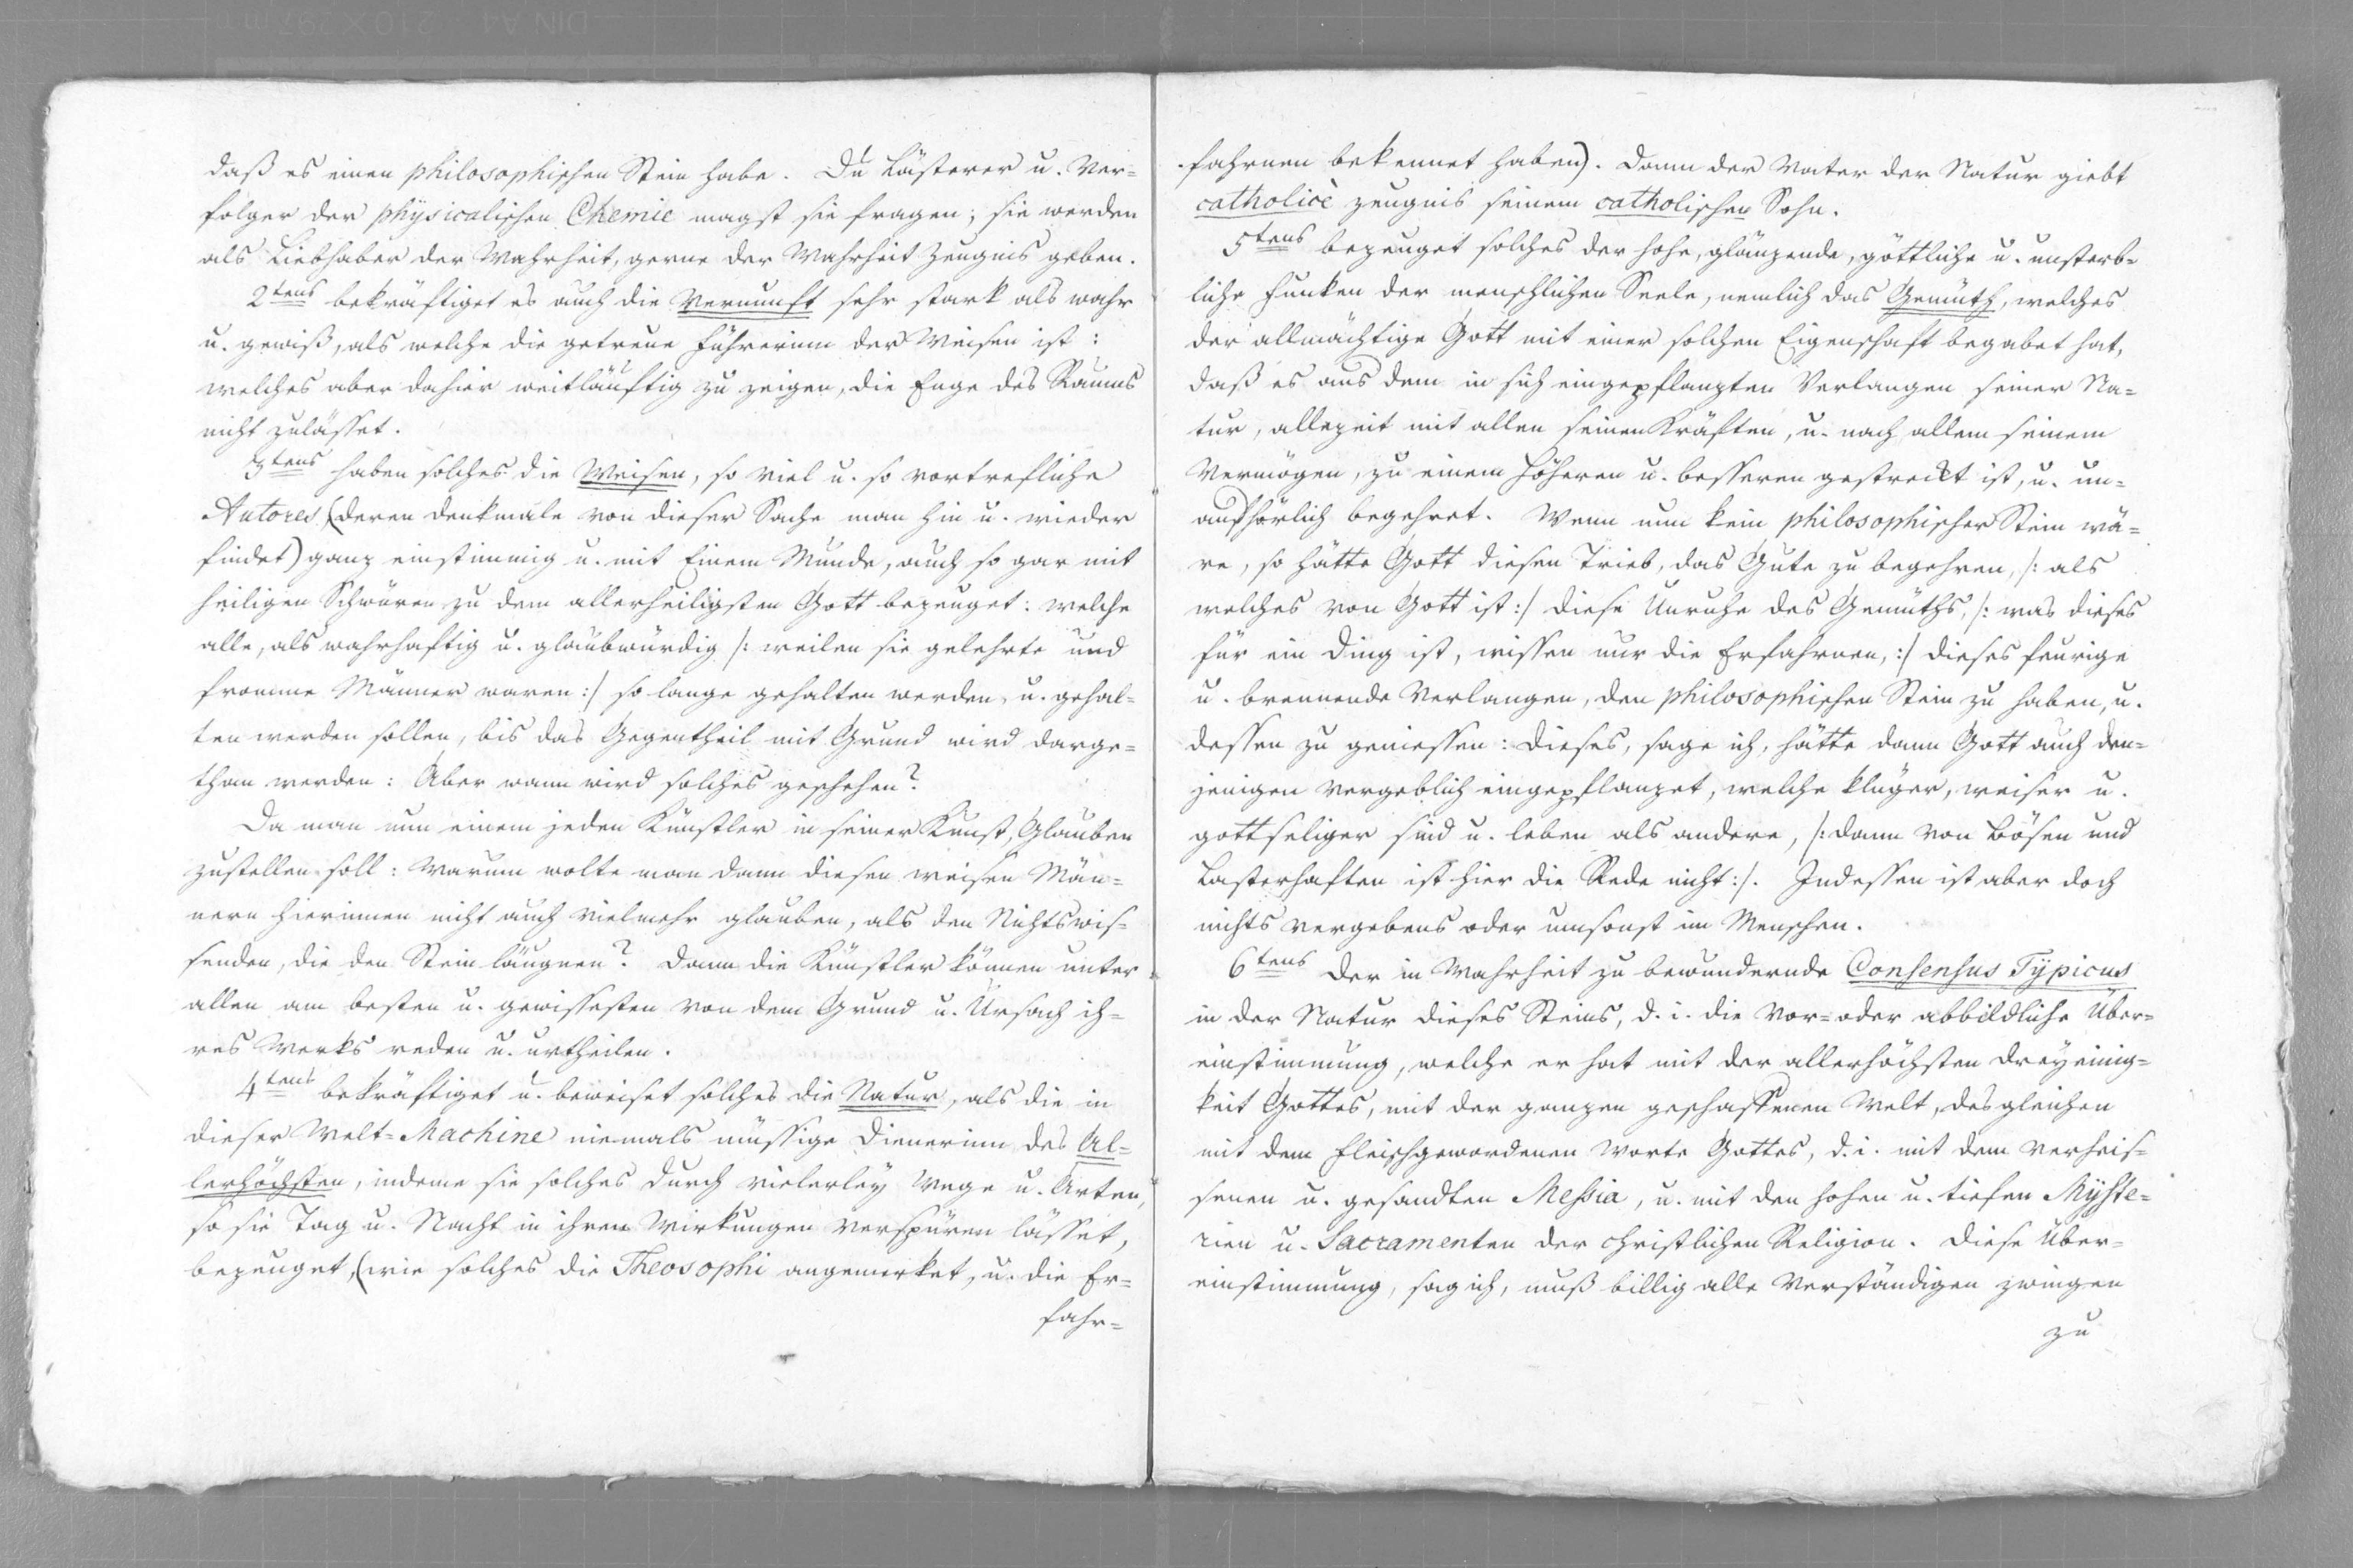 daß es einen philosophischen Stein habe. Du Lästerer u. Ver=
folger der physicalischen Chemie magst sie fragen; sie werden
als Liebhaber der Wahrheit, gerne der Wahrheit Zeugnis geben.
2tens bekräftiget es auch die Vernunft sehr stark als wahr
u. gewiß, als welche die getreue Führerinn der Weisen ist:
welches aber dahier weitläuftig zu zeigen, die Enge des Raums
nicht zulässet.
3tens haben solches die Weisen, so viel u. so vortrefliche
Autores (deren Denkmale von dieser Sache man hin u. wieder
findet) ganz einstimmig u. mit Einem Munde, auch so gar mit
heiligen Schwüren zu dem allerheiligsten Gott bezeuget: welche
alle, als wahrhaftig u. glaubwürdig /: weilen sie gelehrte und
fromme Männer waren :/ so lange gehalten werden, u. gehal=
ten werden sollen, bis das Gegentheil mit Grund wird darge=
than werden: Aber wann wird solches geschehen?
Da man nun einem jeden Künstler in seiner Kunst, Glauben
zustellen soll: warum wolte man dann diesen weisen Män=
nern hierinnen nicht auch vielmehr glauben, als den Nichtswis=
senden, die den Stein läugnen? Dann die Künstler können unter
allen am besten u. gewissesten von dem Grund u. Ursach ih=
res Werks reden u. urtheilen.
4tens bekräftiget u. beweiset solches die Natur, als die in
dieser Welt=Machine niemals müssige Dienerinn des Al=
lerhöchsten, indeme sie solches durch vielerley Wege u. Arten,
so sie Tag u. Nacht in ihren Wirkungen verspüren lässet,
bezeuget, (wie solches die Theosophi angemerket, u. die Er=
fahr=
fahrnen bekennet haben). Dann der Vater der Natur giebt
catholicè zeugnis seinem catholischen Sohn.
5tens bezeuget solches der hohe, glänzende, göttliche u. unsterb=
liche Funken der menschlichen Seele, nemlich das Gemüth, welches
der allmächtige Gott mit einer solchen Eigenschaft begabet hat,
daß es aus dem in sich eingepflanzten Verlangen seiner Na=
tur, allezeit mit allen seinen Kräften, u. nach allem seinem
Vermögen, zu einem Höheren u. besseren gestreckt ist, u. un=
aufhörlich begehret. Wenn nun kein philosophischer Stein wä=
re, so hätte Gott diesen Trieb, das Gute zu begehren, /: als
welches von Gott ist :/ diese Unruhe des Gemüths, /: was dieses
für ein Ding ist, wissen nur die Erfahrnen, :/ dieses feurige
u. brennende Verlangen, den philosophischen Stein zu haben, u.
dessen zu geniessen: dieses, sage ich, hätte dann Gott auch den=
jenigen vergeblich eingepflanzet, welche klüger, weiser u.
gottseliger sind u. leben als andere, /: dann von Bösen und
Lasterhaften ist hier die Rede nicht :/. Indessen ist aber doch
nichts vergebens oder umsonst im Menschen.
6tens Der in Wahrheit zu bewundernde Consensus Typicus
in der Natur dieses Steins, d. i. die vor= oder abbildliche Über=
einstimmung, welche er hat mit der allerhöchsten Dreyeinig=
keit Gottes, mit der ganzen geschaffenen Welt, desgleichen
mit dem fleischgewordenen Worte Gottes, d. i. mit dem verheis=
senen u. gesandten Messia, u. mit den hohen u. tiefen Myste=
rien u. Sacramenten der christlichen Religion. Diese Über=
einstimmung, sag ich, muß billig alle Verständigen zwingen
zu